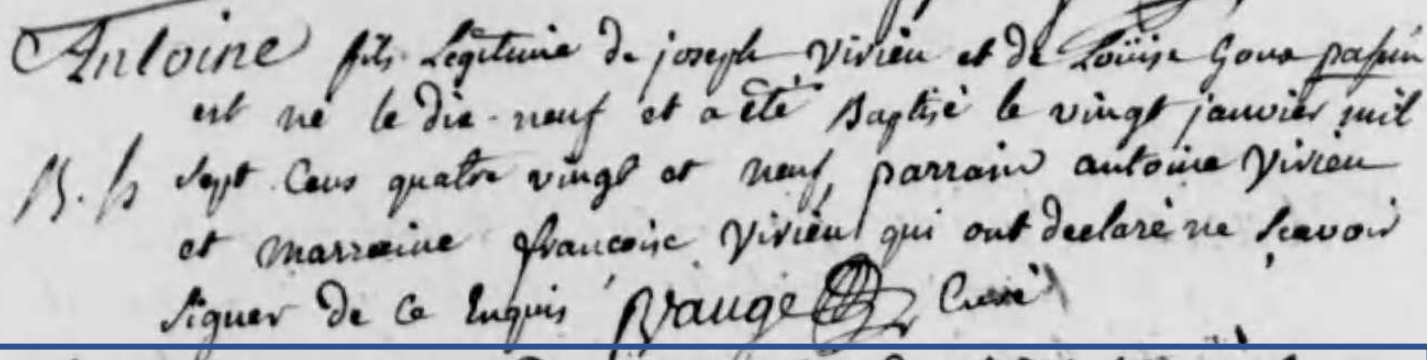 Antoine fils Legitime de joseph Vivien et de Loüise Goux
est né le dix-neuf et a été Baptisé le vingt janvier mil
B. b sept Cens quatre vingt et neuf, parrain antoine Vivien
et marraine françoise Vivien qui ont declaré ne Scavoir
Signer de ce Enquis Bauge Curé